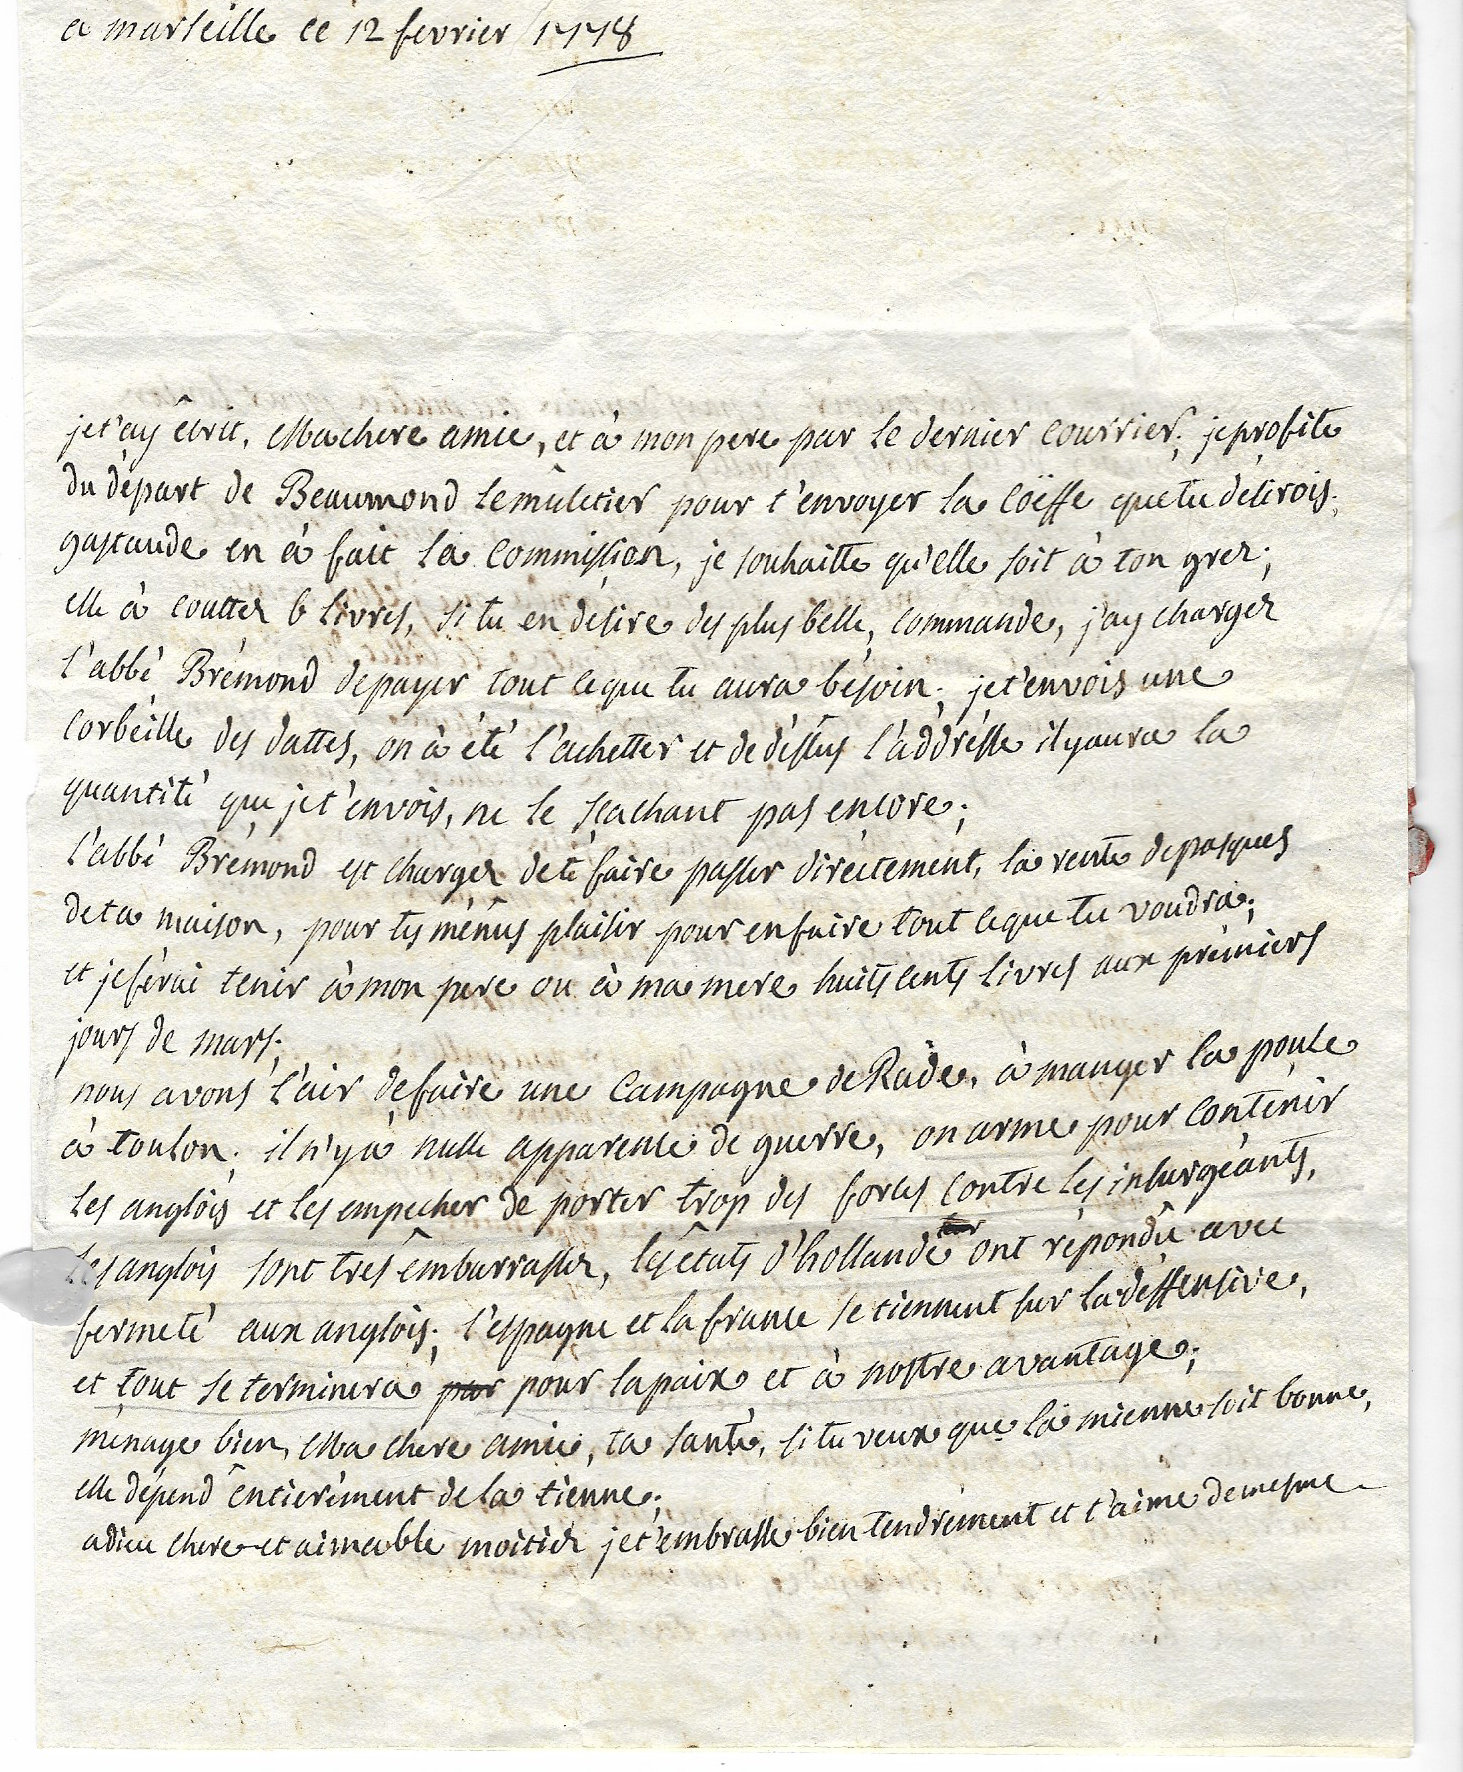 a marseille ce 12 fevrier 1778
je t'ay êcrit, Ma chere amie, et à mon pere par le dernier courrier; je profite
du départ de Beaumond le muletier pour t'envoyer la coëffe que tu desirois;
gastaude en à fait la commission, je souhaitte qu'elle soit à ton grez;
elle à couttez 6 livres, si tu en désire des plus belle, commande, j'ay chargez
l'abbé Brémond de payer tout ce que tu aura bésoin; je t'envois une
corbéille des dattes, on à été l'achetter et de déssus l'àddrésse il y aura la
quantité que je t'envois, ne le sçachant pas encore;
l'abbé Brémond est chargez de te faire passer diréctement, la rente de pasques
de ta maison, pour tes ménus plaisir pour en faire tout ce que tu voudra;
et je férai tenir à mon pere ou à ma mere huits cents livres aux prémiers
jours de mars;
nous avons l'air de faire une Campagne de Rade, à manger la poule
à toulon; il n'y à nulle apparence de guerre, on arme pour contenir
les anglois et les empecher de porter trop des forces contre les insurgéants,
les anglois sont tres êmbarrassez, les êtats d'hollande ont répondû avec
fermeté aux anglois; l'espagne et la france se tiennent sur la déffensive,
et tout se terminera par pour la paix et à nostre avantage;
ménage bien, Ma chere amie, ta santé, si tu veux que la mienne soit bonne,
elle dépend êntierément de la tienne;
adieu chere et aimable moitiéz je t'embrasse bien tendrément et t'aime de mesme